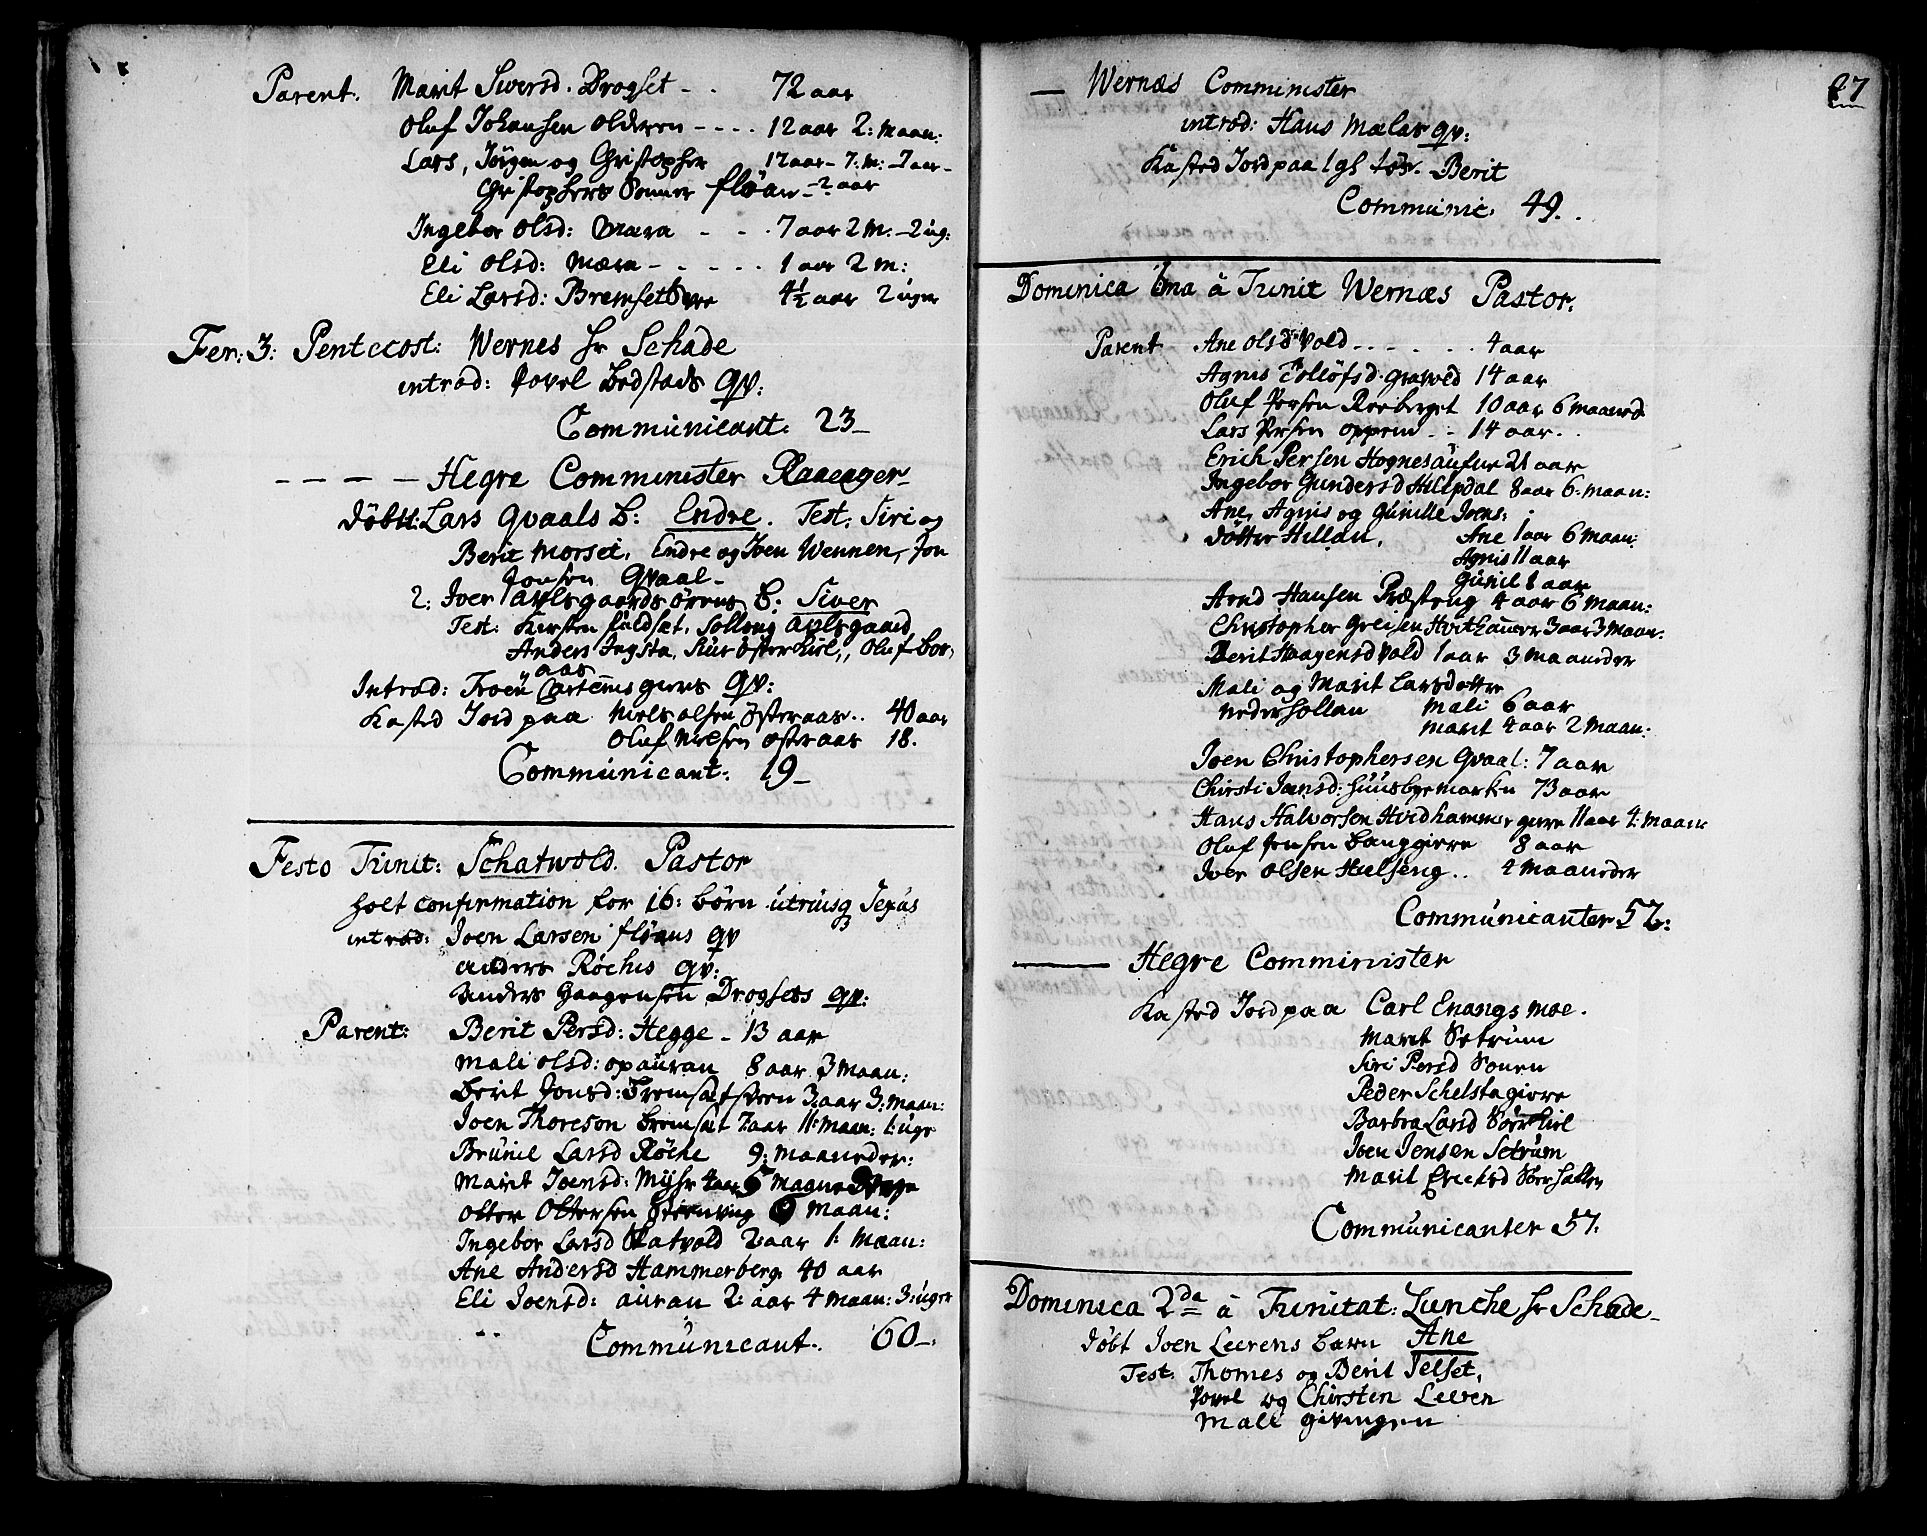 Parent. Marit Siversd. Drogset - . 72 aar
Oluf Johansen olderen - - . . 12 aar 2: maan:
Lars, Jørgen og Christopher 17 aar - 7: m: 7 aar -
Christophers Sønner fløan - 2 aar
Ingebor olsd: Mæra - - . 7 aar 2 m: - 2 ug:
Eli olsd: Mæra - - . . . 1 aar 2 m:
Eli Larsd: Bremset 4½ aar 2 uger
Fer: 3: Pentecost: Wernes hr Schade
introd: Povel Bedstads qv:
Communicant: 23 -
- - - - Hegre Comminister Raaeager -
døbt: Lars Qvaals b: Endre. Test: Siri og
Berit Morset, Endre og Joen Wennen, Jon
Jonsen Qvaal -
2: Joen Axelsgaards b: Siver
Test: Kirsten fuldset, Solloug Axelsgaard
Anders Ingsta, Siur Østerkiel, Oluf Bor,
aas
Introd: Troen qv:
Kasted Jord paa Niels olsen Østeraas .. 40 aar
Oluf Nielsen østeraas 18.
Communicant: 19 -
Festo Trinit: Schatwold. Pastor
holt confirmation for 16: børn utriusq Sexus
introd: Joen Larsen fløans qv
anders Røches qv:
Anders Haagensen Drogsets qv:
Parent: Berit Persd: Hegge - 13 aar
Mali olsd: opauran 8 aar 3 maan:
Berit Jonsd: 3: aar 3: maan:
Joen Thoreson Bremset 7: aar 11: maan: 1: uge
Brünil Larsd Røche 9: maaneder:
Marit Joensd:
otter Ottersen maan:
Ingebor Larsd Skatvold 2: aar 1: maan:
Ane Andersd Hammerberg 40 aar
Eli Joensd: auran 2: aar 4 maan: 3: uger
Communicant. 60 -.
27
— Wernæs Comminister
introd: Hans Mælas qv:
Kasted Jord paa Berit
Communic: 49. .
Dominica 1ma à Trinit Wernæs Pastor.
Parent Ane olsd Vold - . - . - . 4 aar
Agnis Tolløfsd. 14 aar
Oluf Persen Reeberget 10 aar 6 maaned
Lars Persen oppem - - 14 aar. .
Erich Persen Hognesaufue 21 aar
Ingebor Gundersd Hillpdal 8 aar 6. maan:
Ane, Agnis og Gunille Joens:
døtter Hellan, Ane 1 aar 6 maan:
Agnis 11 aar
Gunil 8 aar
Arnd Hansen Præsteng 4 aar 6 maan:
Christopher Greisen 3 aar 3 maan:
Berit Haagensd Vold 1 aar 3 maaneder
Mali og Marit Larsdøtter
nederhollan Mali 6 aar
marit 4 aar 2 maan:
Joen Christophersen Qvaal: 7 aar
Chirsti Joensd: huusbyemarken 73 aar
Hans Halvorsen Hvidhammer gere 11 aar 4: maan:
Oluf Jensen Banggierre 8 aar
Joen olsen Hielseng .. 4 maaneder
Communicanter 52:
— Hegre Comminister
Kasted Jord paa Carl Enangs moe.
Marit Setrum
Siri Persd Sonen
Peder Schelstagierre
Barbra Larsd Sørkiel
Joen Jensen Setrum
Marit Erichsd
Communicanter 57.
Dominica 2da à Trinitat: Lunche hr Schade -
døbt Joen Leerens barn Ane
Test: Thomes og Berit Telset,
Povel og Chirsten Leeren
Mali givingen